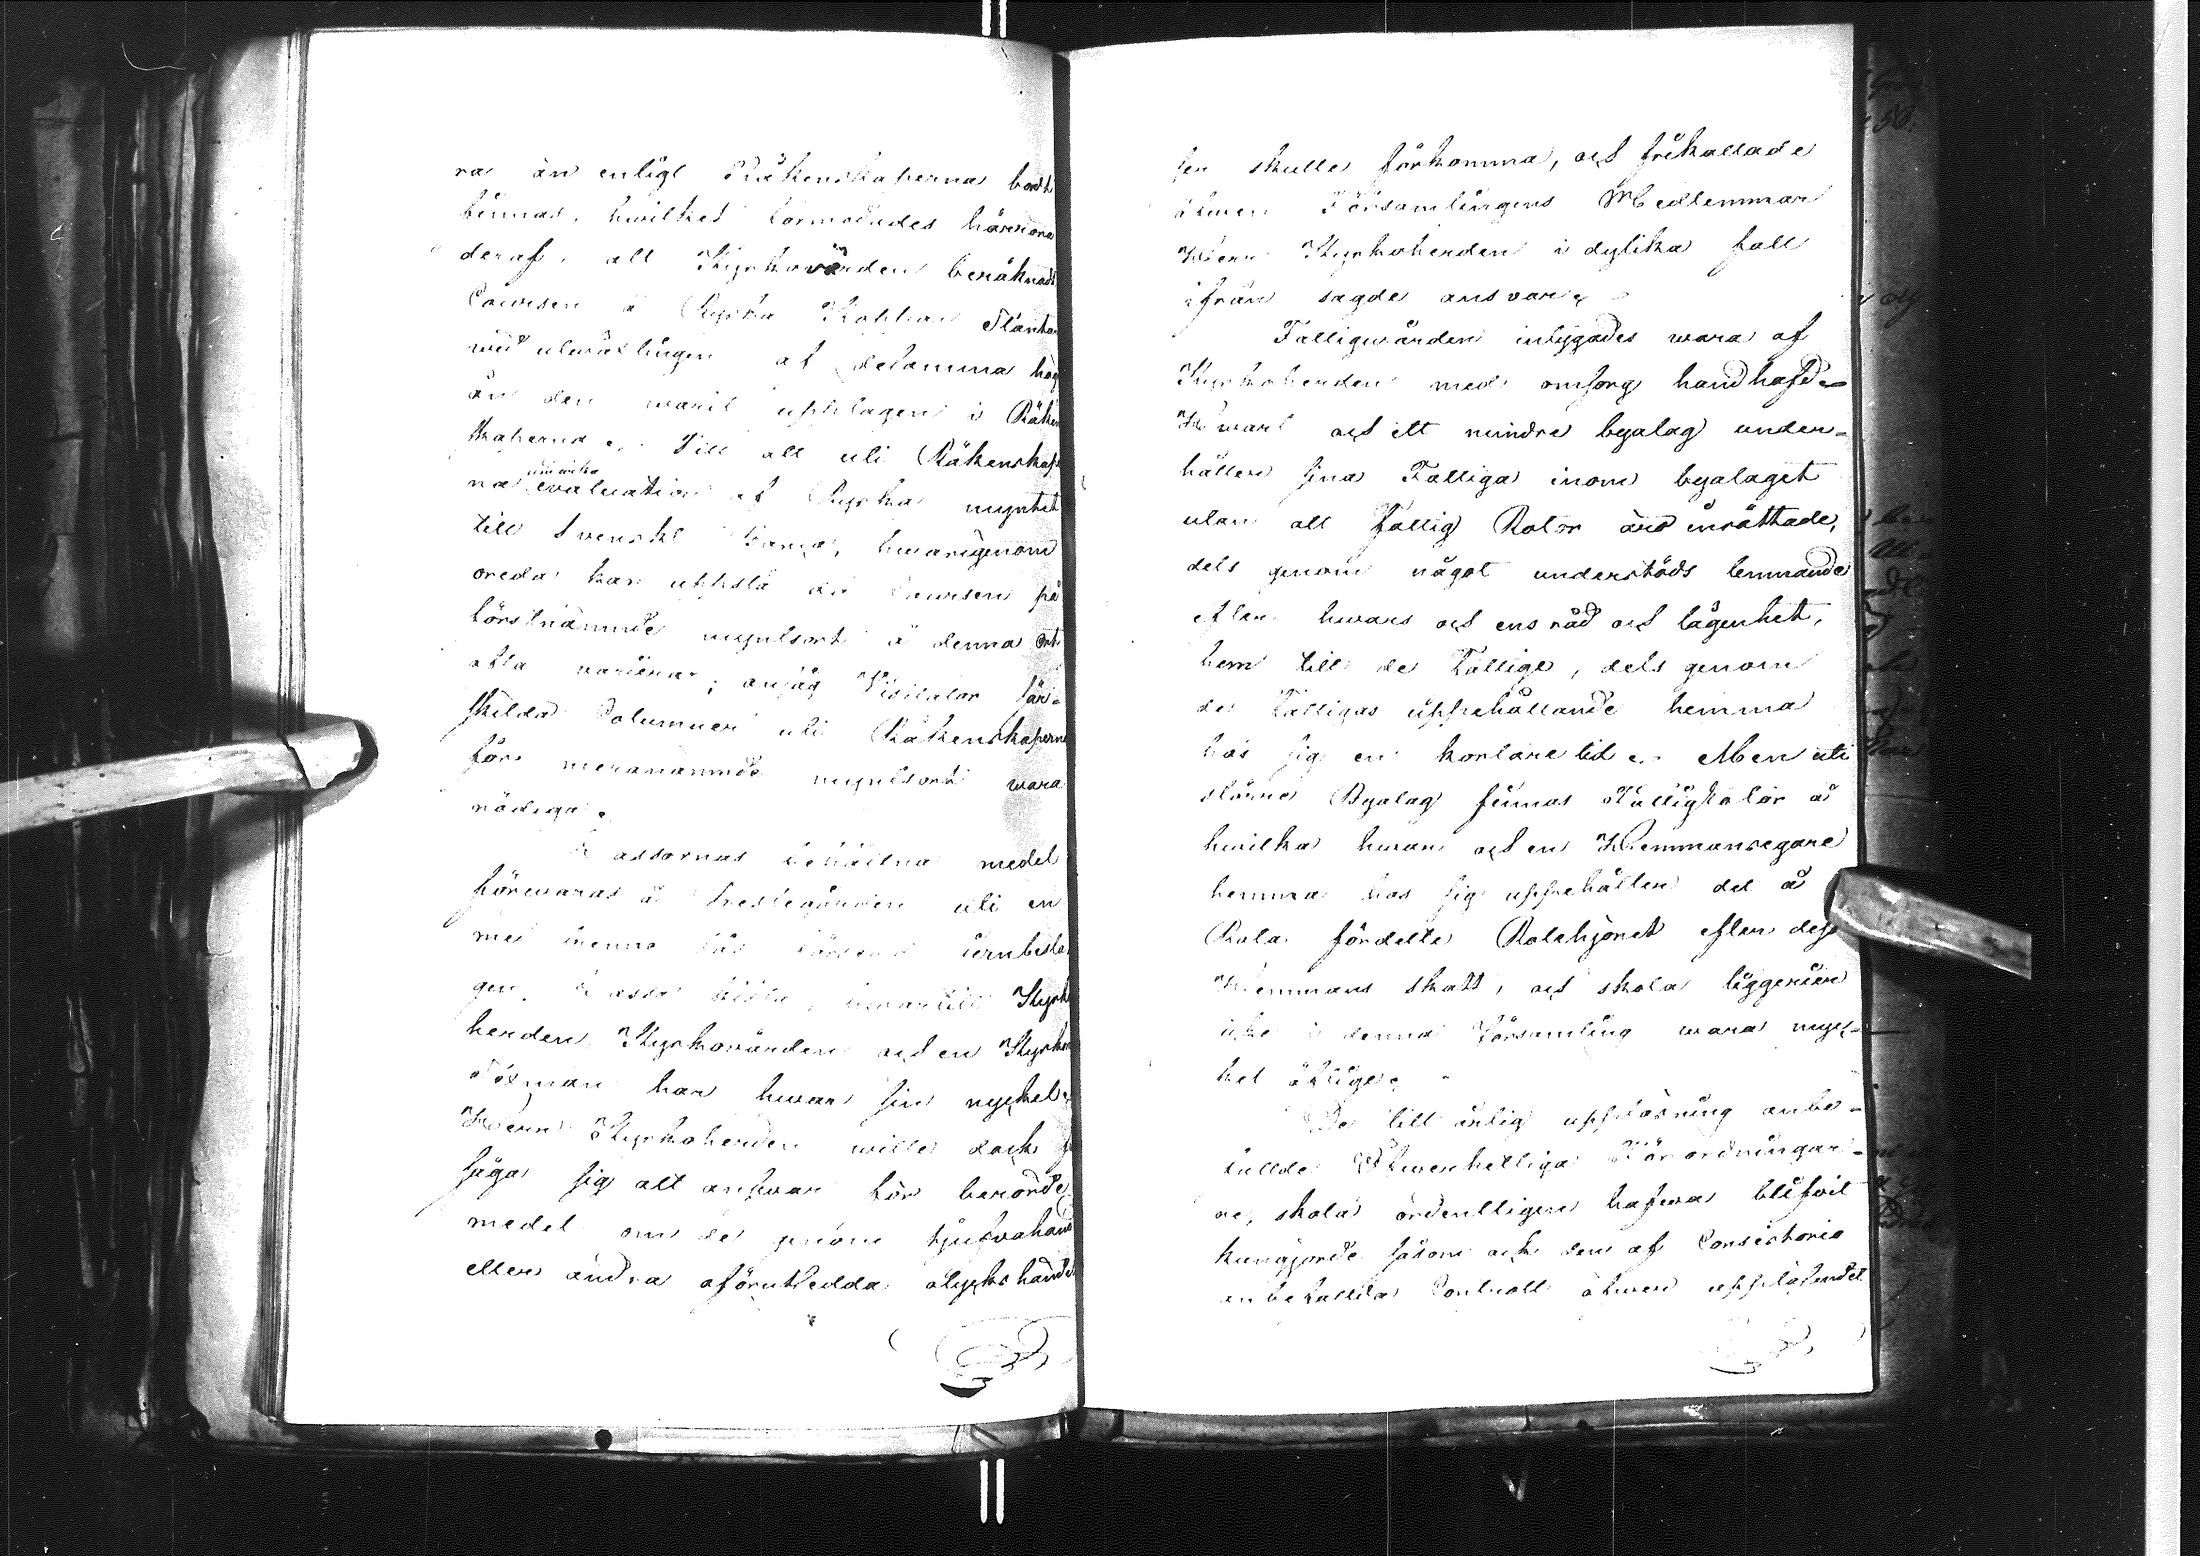 ra än enligt Räkenskaperna bordt
finnas, hwilket förmodades härröra
deraf, att Kyrkovärden beräknadt
Coursen å Ryska Koppar Slantar
wid utwäxlingen af desamma hög
än den warit upptagen i Räken
skaperna. Till att uti Räkenskap
na undwika evaluation af Ryska myntet
till Svenskt Banco, hwarigenom
oreda kan uppstå då Coursen på
förstnämnde myntsort å denna ort
ofta varierar; ansåg Visitator sär-
skilda Columner uti Räkenskaperne
för meranämnde myntsort wara
nödiga.
Cassornas behållna medel
förwaras å Prestegården uti en
med trenne lås försedd jernbesla
gen Cassa kista, hwartill Kyrk
herden, Kyrkovärden och en Kyrko
Sexman har hwar sin nyckel.
Herr Kyrkoherden wille dock
säga sig allt answar för berörde
medel om de genom tjufvahand
eller andra oförutsedda olyckshänd
ser skulle förkomma, och frikallade
äfwen Församlingens Medlemmar
Herr Kyrkoherden i dylika fall
ifrån sagde answar.
Fattigwården intygades wara af
Kyrkoherden med omsorg handhafd.
Hwart och ett mindre byalag under-
håller sina Fattiga inom byalaget
utan att Fattig Rotor äro inrättade,
dels genom något understöds lemnande
efter hwars och ens råd och lägenhet,
hem till de Fattige, dels genom
de Fattigas uppehållande hemma
hos sig en kortare tid. Men uti
större Byalag finnas Fattigrotor å
hwilka hwar och en Hemmansegare
hemma hos sig uppehåller det å
Rota fördelte Rotehjonet efter dess
Hemmans skatt, och skola tiggerier
icke i denna Församling wara myc-
ket öflige.
De till årlig uppläsning anbe-
fallde Öfwerhetliga Förordningar-
ne, skola ordentligen hafwa blifwit
kungjorde såsom ock den af Consistorio
anbefallda Controll öfwer uppläsandet